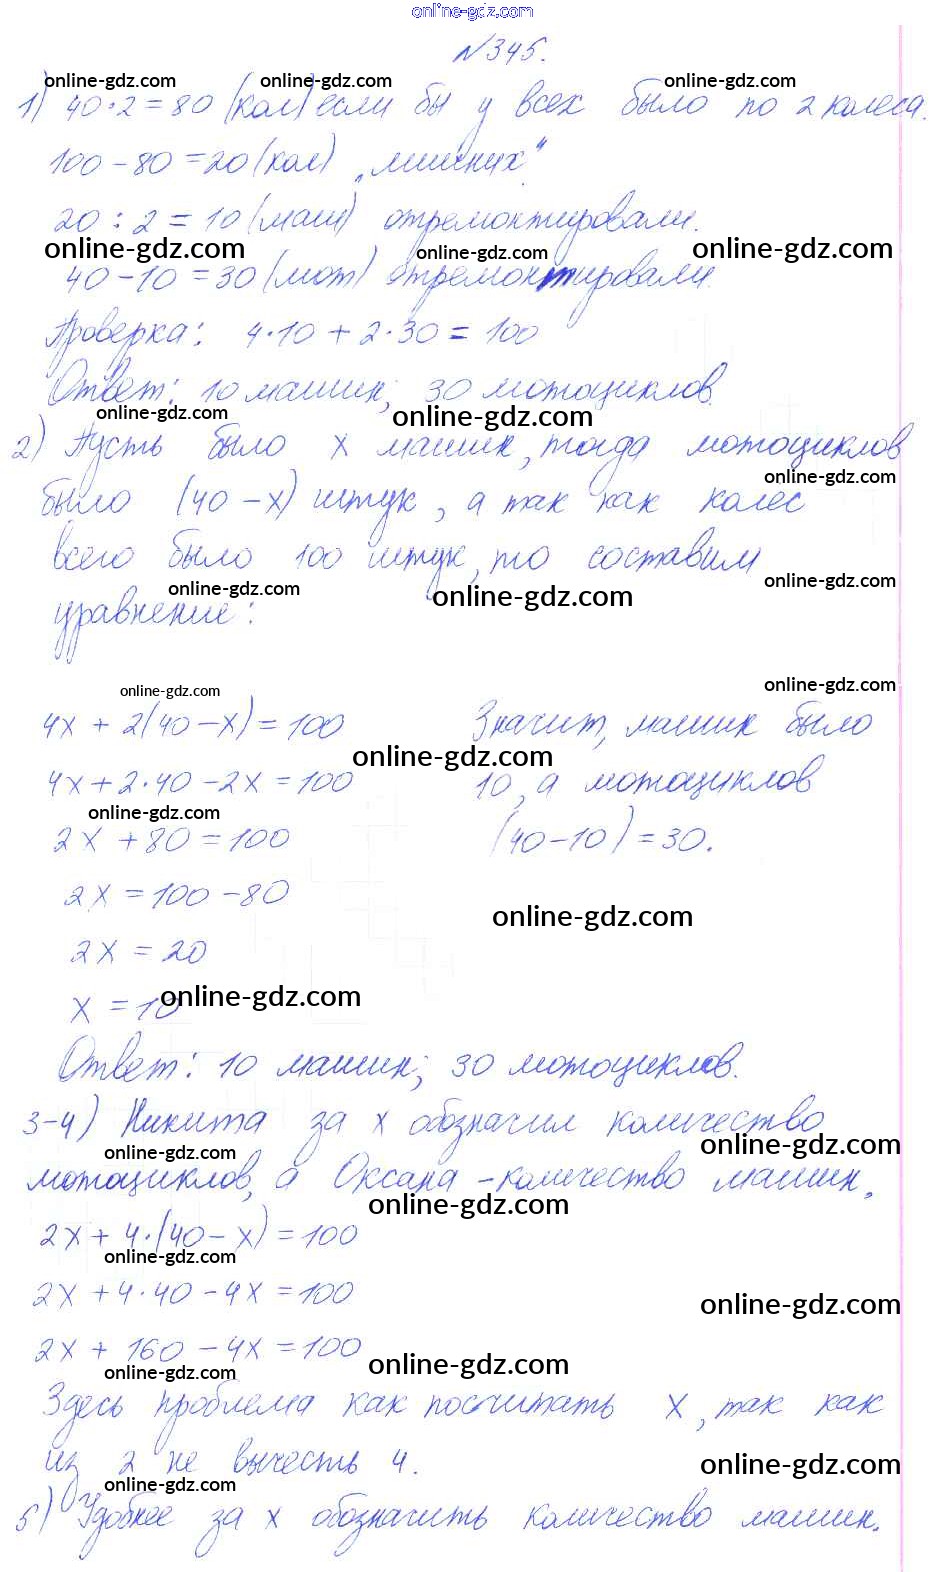 online-gdz.com
№345.
online-gdz.com online-gdz.com online-gdz.com
1) 40·2=80 (кол) если бы у всех было по 2 колеса.
100-80=20 (кол) „лишних"
20:2=10 (маш) отремонтировали.
online-gdz.com online-gdz.com online-gdz.com
40-10=30 (мот) отремонтировали.
Проверка: 4·10+2·30=100
Ответ: 10 машин; 30 мотоциклов.
online-gdz.com online-gdz.com
2) Пусть было x машин, тогда мотоциклов
online-gdz.com
было (40-x) штук, а так как колес
всего было 100 штук, то составим
online-gdz.com online-gdz.com online-gdz.com
уравнение:
online-gdz.com online-gdz.com
4x+2(40-x)=100 Значит, машин было
online-gdz.com
4x+2·40-2x=100 10, а мотоциклов
online-gdz.com
2x+80=100 (40-10)=30.
2x=100-80
online-gdz.com
2x=20
x=10 online-gdz.com
Ответ: 10 машин; 30 мотоциклов.
3-4) Никита за x обозначил количество
online-gdz.com online-gdz.com
мотоциклов, а Оксана - количество машин.
online-gdz.com
2x+4·(40-x)=100
online-gdz.com
2x+4·40-4x=100
online-gdz.com
2x+160-4x=100
online-gdz.com online-gdz.com
Здесь проблема как посчитать x, так как
из 2 не вычесть 4.
online-gdz.com online-gdz.com
5) Удобнее за x обозначить количество машин.